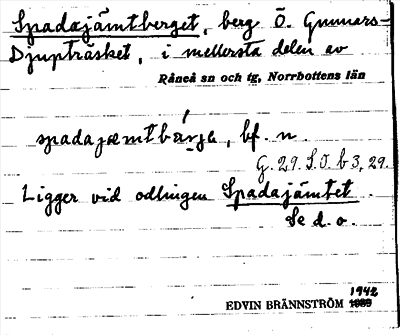 Spadajämtberget, berg Ö. Gunnars-
Djupträsket, i mellersta delen av
Råneå sn och tg, Norrbottens län
spadajæmtbárja, bf. n.
G. 29. S.J. b 3, 29.
Ligger vid odlingen Spadajämtet.
Se d. o.
1942
EDVIN BRÄNNSTRÖM 1939